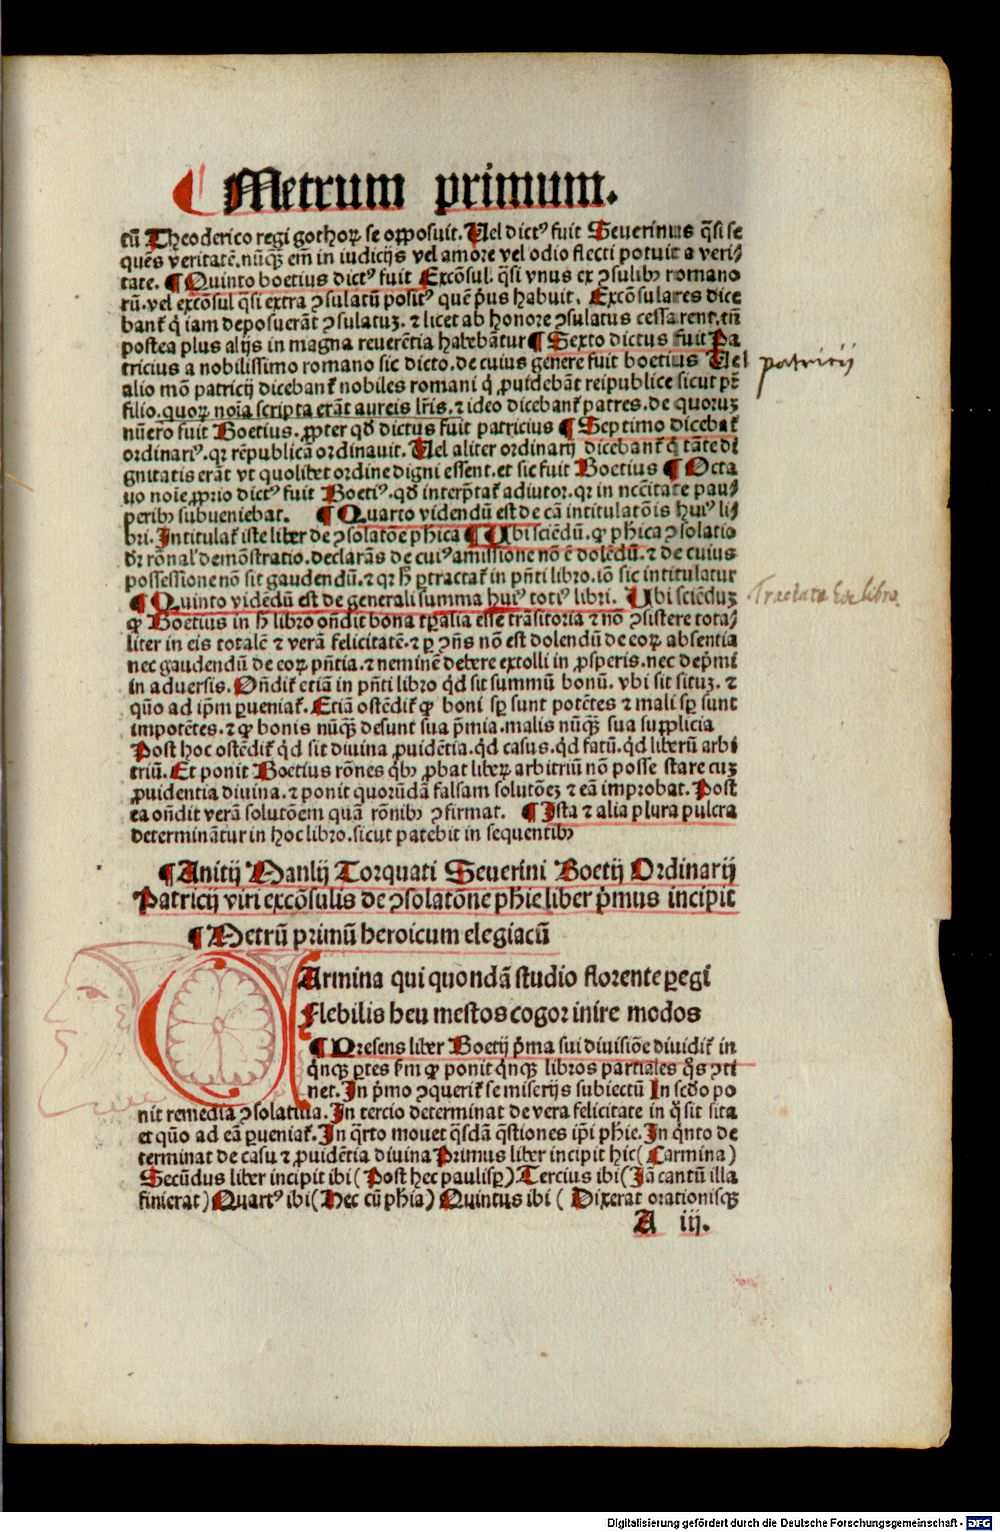 ¶ Metrum primum.
tū Theoderico regi gothoꝝ se opposuit. Uel dictꝰ fuit Seuerinus q̄si se
quēs veritatē. nūqꝫ em̄ in iudicijs vel amore vel odio flecti potuit a veri⸗
tate. ¶ Quinto boetius dictꝰ fuit Excōsul. q̄si vnus ex ꝯsulibꝰ romano
rū. vel excōsul q̄si extra ꝯsulatū positꝰ quē p̄us habuit. Excōsulares dice
bant̄ q̄ iam deposuerāt ꝯsulatuꝫ. ⁊ licet ab honore ꝯsulatus cessarent. tn̄
postea plus alijs in magna reuerētia habebātur ¶ Sexto dictus fuit Pa
tricius a nobilissimo romano sic dicto. de cuius genere fuit boetius Uel
alio mō patricij dicebant̄ nobiles romani q̄ ꝓuidebāt reipublice sicut pr̄
filio. quoꝝ noīa scripta erāt aureis lr̄is. ⁊ ideo dicebant̄ patres. de quoruꝫ
nūero fuit Boetius. ꝓpter qd̄ dictus fuit patricius ¶ Septimo dicebat̄
ordinariꝰ. qꝛ rēpublicā ordinauit. Uel aliter ordinarij dicebant̄ q̄ tāte di
gnitatis erāt vt quolibet ordine digni essent. et sic fuit Boetius ¶ Octa
uo noīe ꝓprio dictꝰ fuit Boetiꝰ. qd̄ interp̄tat̄ adiutor. qꝛ in nccīitate pau⸗
peribꝰ subueniebat. ¶ Quarto videndū est de cā intitulatōis huiꝰ li⸗
bri. Intitulat̄ iste liber de ꝯsolatōe phica ¶ Ubi sciēdū. ꝙ phica ꝯsolatio
dr̄ rōnal̓ demōstratio. declarās de cuiꝰ amissione nō ē dolēdū. ⁊ de cuius
possessione nō sit gaudendū. ⁊ qꝛ h̄ ꝑtractat̄ in pn̄ti libro. iō sic intitulatur
¶ Quinto vidēdū est de generali summa huiꝰ totiꝰ libri. Ubi sciēduꝫ
ꝙ Boetius in h̄ libro on̄dit bona tꝑalia esse trāsitoria ⁊ nō ꝯsistere tota⸗
liter in eis totalē ⁊ verā felicitatē. ⁊ ꝑ ꝯn̄s nō est dolendū de eoꝝ absentia
nec gaudendū de eoꝝ pn̄tia. ⁊ neminē debere extolli in ꝓsperis. nec dep̄mi
in aduersis. On̄dit̄ etiā in pn̄ti libro qd̄ sit summū bonū. vbi sit situꝫ. ⁊
quō ad ip̄m ꝑueniat̄. Etiā ostēdit̄ ꝙ boni sꝑ sunt potētes ⁊ mali sꝑ sunt
impotētes. ⁊ ꝙ bonis nūqꝫ desunt sua p̄mia. malis nūqꝫ sua supplicia
Post hoc ostēdit̄ qd̄ sit diuina ꝓuidētia. qd̄ casus. qd̄ fatū. qd̄ liberū arbi
triū. Et ponit Boetius rōnes qꝰ ꝓbat liberꝝ arbitriū nō posse stare cuꝫ
ꝓuidentia diuina. ⁊ ponit quorūdā falsam solutōeꝫ ⁊ eā improbat. Post
ea on̄dit verā solutōem quā rōnibꝰ ꝯfirmat. ¶ Ista ⁊ alia plura pulcra
determinātur in hoc libro. sicut patebit in sequentibꝰ
¶ Anitij Manlij Torquati Seuerini Boetij Ordinarij
Patricij viri excōsulis de ꝯsolatōne phie liber p̄mus incipit
¶ Metrū primū heroicum elegiacū
CArmina qui quondā studio florente ꝑegi
Flebilis heu mestos cogor inire modos
¶ Presens liber Boetij p̄ma sui diuisiōe diuidit̄ in
q̄nqꝫ ꝑtes ẜm ꝙ ponit q̄nqꝫ libros partiales q̄s ꝯti
net. In p̄mo ꝯquerit̄ se miserijs subiectū In sc̄do po
nit remedia ꝯsolatiua. In tercio determinat de vera felicitate in q̄ sit sita
et quō ad eā ꝑueniat̄. In q̄rto mouet q̄sdā q̄stiones ip̄i phie. In q̄nto de
terminat de casu ⁊ ꝓuidētia diuina Primus liber incipit hic (Carmina)
Secūdus liber incipit ibi (Post hec paulisꝑ) Tercius ibi (Jā cantū illa
finierat) Quartꝰ ibi (Hec cū phia) Quintus ibi (Dixerat orationisqꝫ
A iij.
patricij
Tractata hoc libro.
Digitalisierung gefördert durch die Deutsche Forschungsgemeinschaft - DFG